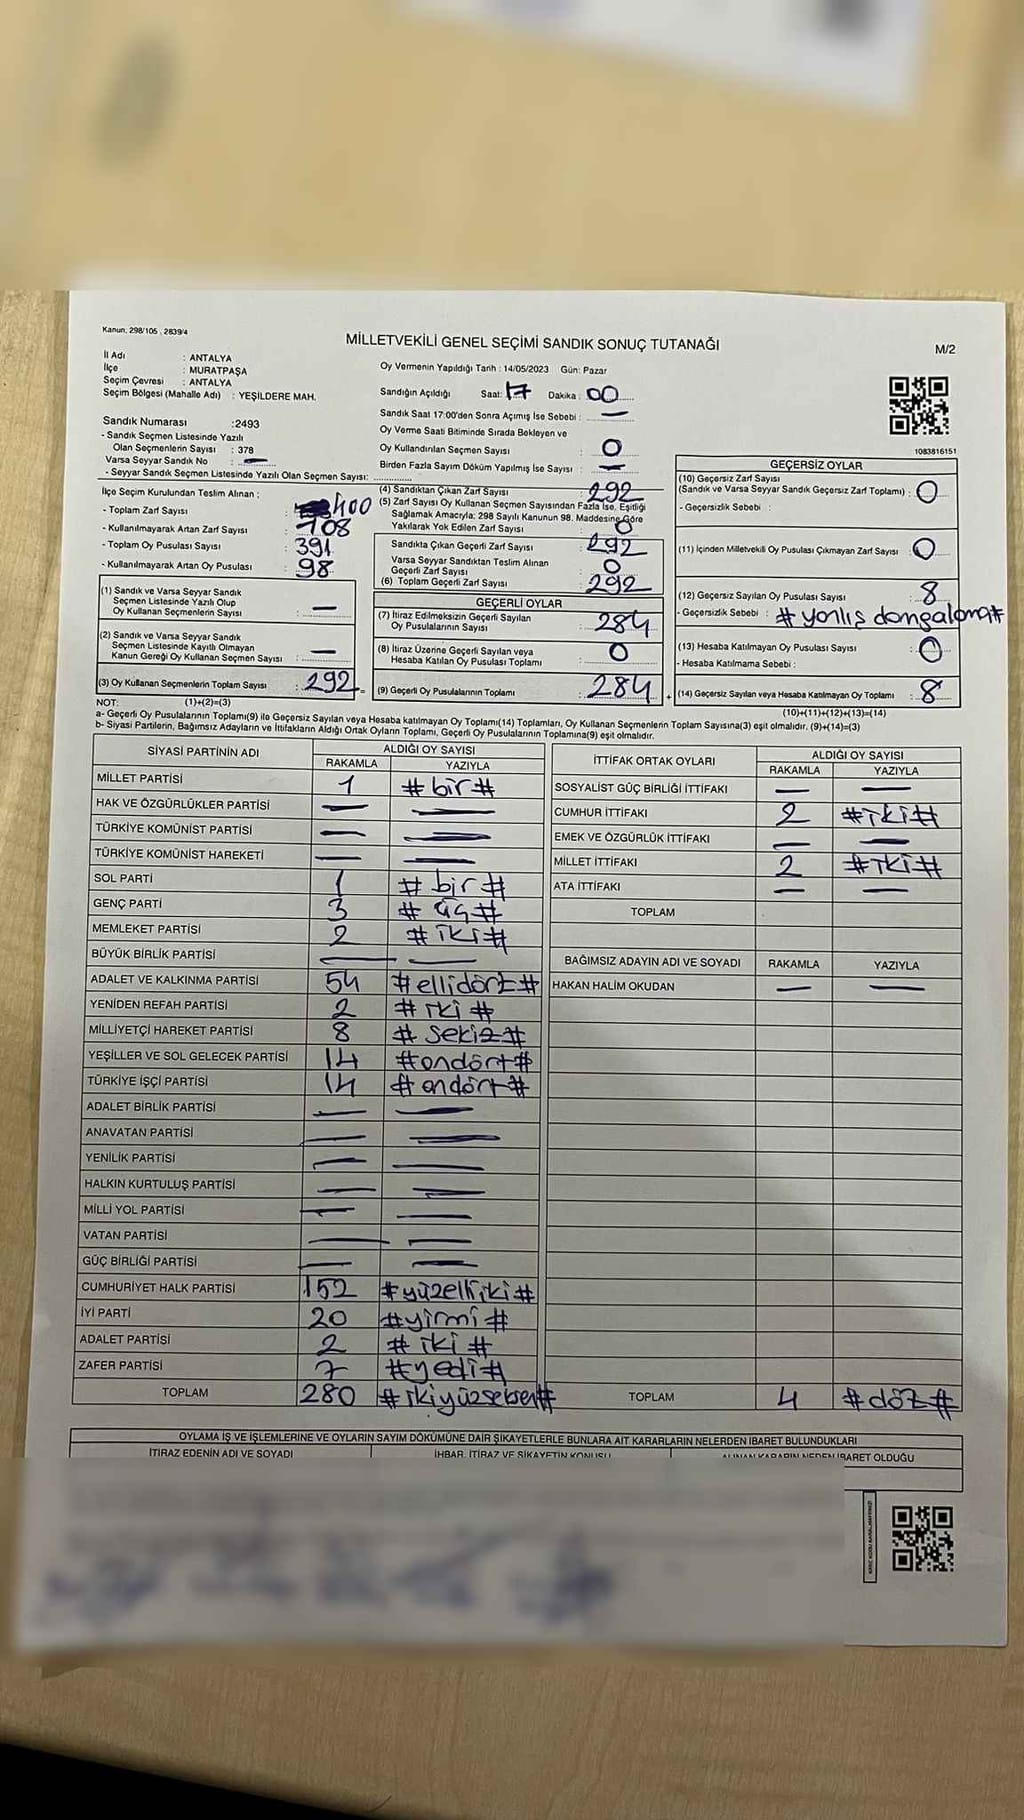 Kanun: 298/105 , 2839/4
MİLLETVEKİLİ GENEL SEÇİMİ SANDIK SONUÇ TUTANAĞI
M/2
İl Adı : ANTALYA
İlçe : MURATPAŞA
Seçim Çevresi : ANTALYA
Seçim Bölgesi (Mahalle Adı) : YEŞİLDERE MAH.
Oy Vermenin Yapıldığı Tarih : 14/05/2023 Gün: Pazar
Sandığın Açıldığı Saat: 17 Dakika : 00
Sandık Saat 17:00'den Sonra Açımış İse Sebebi : —
Oy Verme Saati Bitiminde Sırada Bekleyen ve
Oy Kullandırılan Seçmen Sayısı : 0
Birden Fazla Sayım Döküm Yapılmış İse Sayısı : —
Sandık Numarası :2493
- Sandık Seçmen Listesinde Yazılı
Olan Seçmenlerin Sayısı : 378
Varsa Seyyar Sandık No : —
- Seyyar Sandık Seçmen Listesinde Yazılı Olan Seçmen Sayısı:
1083816151
İlçe Seçim Kurulundan Teslim Alınan ;
- Toplam Zarf Sayısı : 400
- Kullanılmayarak Artan Zarf Sayısı : 108
- Toplam Oy Pusulası Sayısı : 391
- Kullanılmayarak Artan Oy Pusulası : 98
(1) Sandık ve Varsa Seyyar Sandık
Seçmen Listesinde Yazılı Olup
Oy Kullanan Seçmenlerin Sayısı : —
(2) Sandık ve Varsa Seyyar Sandık
Seçmen Listesinde Kayıtlı Olmayan
Kanun Gereği Oy Kullanan Seçmen Sayısı : —
(3) Oy Kullanan Seçmenlerin Toplam Sayısı : 292 =
(1)+(2)=(3)
(4) Sandıktan Çıkan Zarf Sayısı : 292
(5) Zarf Sayısı Oy Kullanan Seçmen Sayısından Fazla İse, Eşitliği
Sağlamak Amacıyla; 298 Sayılı Kanunun 98. Maddesine Göre
Yakılarak Yok Edilen Zarf Sayısı : 0
Sandıkta Çıkan Geçerli Zarf Sayısı : 292
Varsa Seyyar Sandıktan Teslim Alınan
Geçerli Zarf Sayısı : 0
(6) Toplam Geçerli Zarf Sayısı : 292
GEÇERLİ OYLAR
(7) İtiraz Edilmeksizin Geçerli Sayılan
Oy Pusulalarının Sayısı : 284
(8) İtiraz Üzerine Geçerli Sayılan veya
Hesaba Katılan Oy Pusulası Toplamı : 0
(9) Geçerli Oy Pusulalarının Toplamı : 284 +
GEÇERSİZ OYLAR
(10) Geçersiz Zarf Sayısı
(Sandık ve Varsa Seyyar Sandık Geçersiz Zarf Toplamı) : 0
- Geçersizlik Sebebi :
(11) İçinden Milletvekili Oy Pusulası Çıkmayan Zarf Sayısı : 0
(12) Geçersiz Sayılan Oy Pusulası Sayısı : 8
- Geçersizlik Sebebi : # yanlış damgalama#
(13) Hesaba Katılmayan Oy Pusulası Sayısı : 0
- Hesaba Katılmama Sebebi :
(14) Geçersiz Sayılan veya Hesaba Katılmayan Oy Toplamı : 8
(10)+(11)+(12)+(13)=(14)
NOT:
a- Geçerli Oy Pusulalarının Toplamı(9) ile Geçersiz Sayılan veya Hesaba Katılmayan Oy Toplamı(14) Toplamları, Oy Kullanan Seçmenlerin Toplam Sayısına(3) eşit olmalıdır. (9)+(14)=(3)
b- Siyasi Partilerin, Bağımsız Adayların ve İttifakların Aldığı Ortak Oyların Toplamı, Geçerli Oy Pusulalarının Toplamına(9) eşit olmalıdır.
SİYASİ PARTİNİN ADI ALDIĞI OY SAYISI
RAKAMLA YAZIYLA
MİLLET PARTİSİ 1 # bir #
HAK VE ÖZGÜRLÜKLER PARTİSİ — —
TÜRKİYE KOMÜNİST PARTİSİ — —
TÜRKİYE KOMÜNİST HAREKETİ — —
SOL PARTİ 1 # bir #
GENÇ PARTİ 3 # üç #
MEMLEKET PARTİSİ 2 # iki #
BÜYÜK BİRLİK PARTİSİ — —
ADALET VE KALKINMA PARTİSİ 54 #ellidört#
YENİDEN REFAH PARTİSİ 2 # iki #
MİLLİYETÇİ HAREKET PARTİSİ 8 # sekiz #
YEŞİLLER VE SOL GELECEK PARTİSİ 14 #ondört#
TÜRKİYE İŞÇİ PARTİSİ 14 # ondört #
ADALET BİRLİK PARTİSİ — —
ANAVATAN PARTİSİ — —
YENİLİK PARTİSİ — —
HALKIN KURTULUŞ PARTİSİ — —
MİLLİ YOL PARTİSİ — —
VATAN PARTİSİ — —
GÜÇ BİRLİĞİ PARTİSİ — —
CUMHURİYET HALK PARTİSİ 152 #yüzelliiki#
İYİ PARTİ 20 #yirmi #
ADALET PARTİSİ 2 # iki #
ZAFER PARTİSİ 7 #yedi#
TOPLAM 280 #ikiyüzseksen#
İTTİFAK ORTAK OYLARI ALDIĞI OY SAYISI
RAKAMLA YAZIYLA
SOSYALİST GÜÇ BİRLİĞİ İTTİFAKI — —
CUMHUR İTTİFAKI 2 #iki#
EMEK VE ÖZGÜRLÜK İTTİFAKI — —
MİLLET İTTİFAKI 2 #iki#
ATA İTTİFAKI — —
TOPLAM
BAĞIMSIZ ADAYIN ADI VE SOYADI RAKAMLA YAZIYLA
HAKAN HALİM OKUDAN — —
TOPLAM 4 #döz#
OYLAMA İŞ VE İŞLEMLERİNE VE OYLARIN SAYIM DÖKÜMÜNE DAİR ŞİKAYETLERLE BUNLARA AİT KARARLARIN NELERDEN İBARET BULUNDUKLARI
İTİRAZ EDENİN ADI VE SOYADI İHBAR, İTİRAZ VE ŞİKAYETİN KONUSU ALINAN KARARIN NEDEN İBARET OLDUĞU